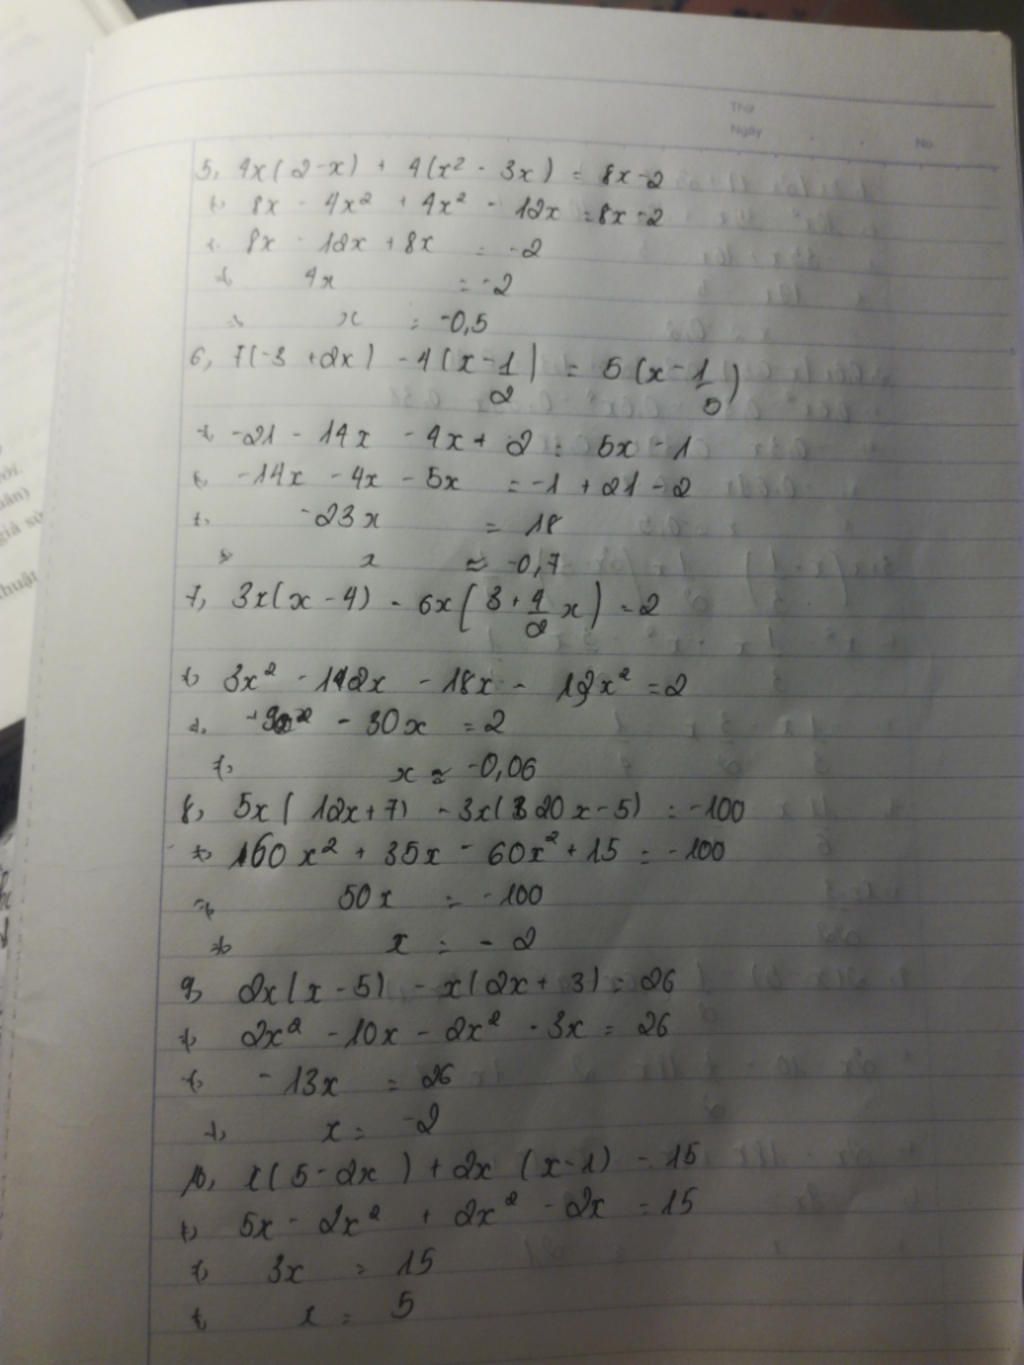 Thứ
Ngày
No.
5, 4x(2-x) + 4(x² - 3x) = 8x-2
8x - 4x² + 4x² - 12x = 8x-2
8x - 12x + 8x = -2
4x = -2
x = -0,5
6, 7(-3 + 2x) - 4(x-1/2) = 5(x-1/5)
-21 - 14x - 4x + 2 = 5x - 1
-14x - 4x - 5x = -1 + 21 - 2
-23x = 18
x ≈ -0,7
7, 3x(x - 4) - 6x(3 + 4/2 x) = 2
3x² - 12x - 18x - 12x² = 2
- 30x = 2
x ≈ -0,06
8, 5x(12x+7) - 3x(20x-5) = -100
60x² + 35x - 60x² + 15 = -100
50x = -100
x = -2
9, 2x(x - 5) - x(2x + 3) = 26
2x² - 10x - 2x² - 3x = 26
-13x = 26
x = -2
10, x(5 - 2x) + 2x (x-1) = 15
5x - 2x² + 2x² - 2x = 15
3x = 15
x = 5
giả sử
thuật